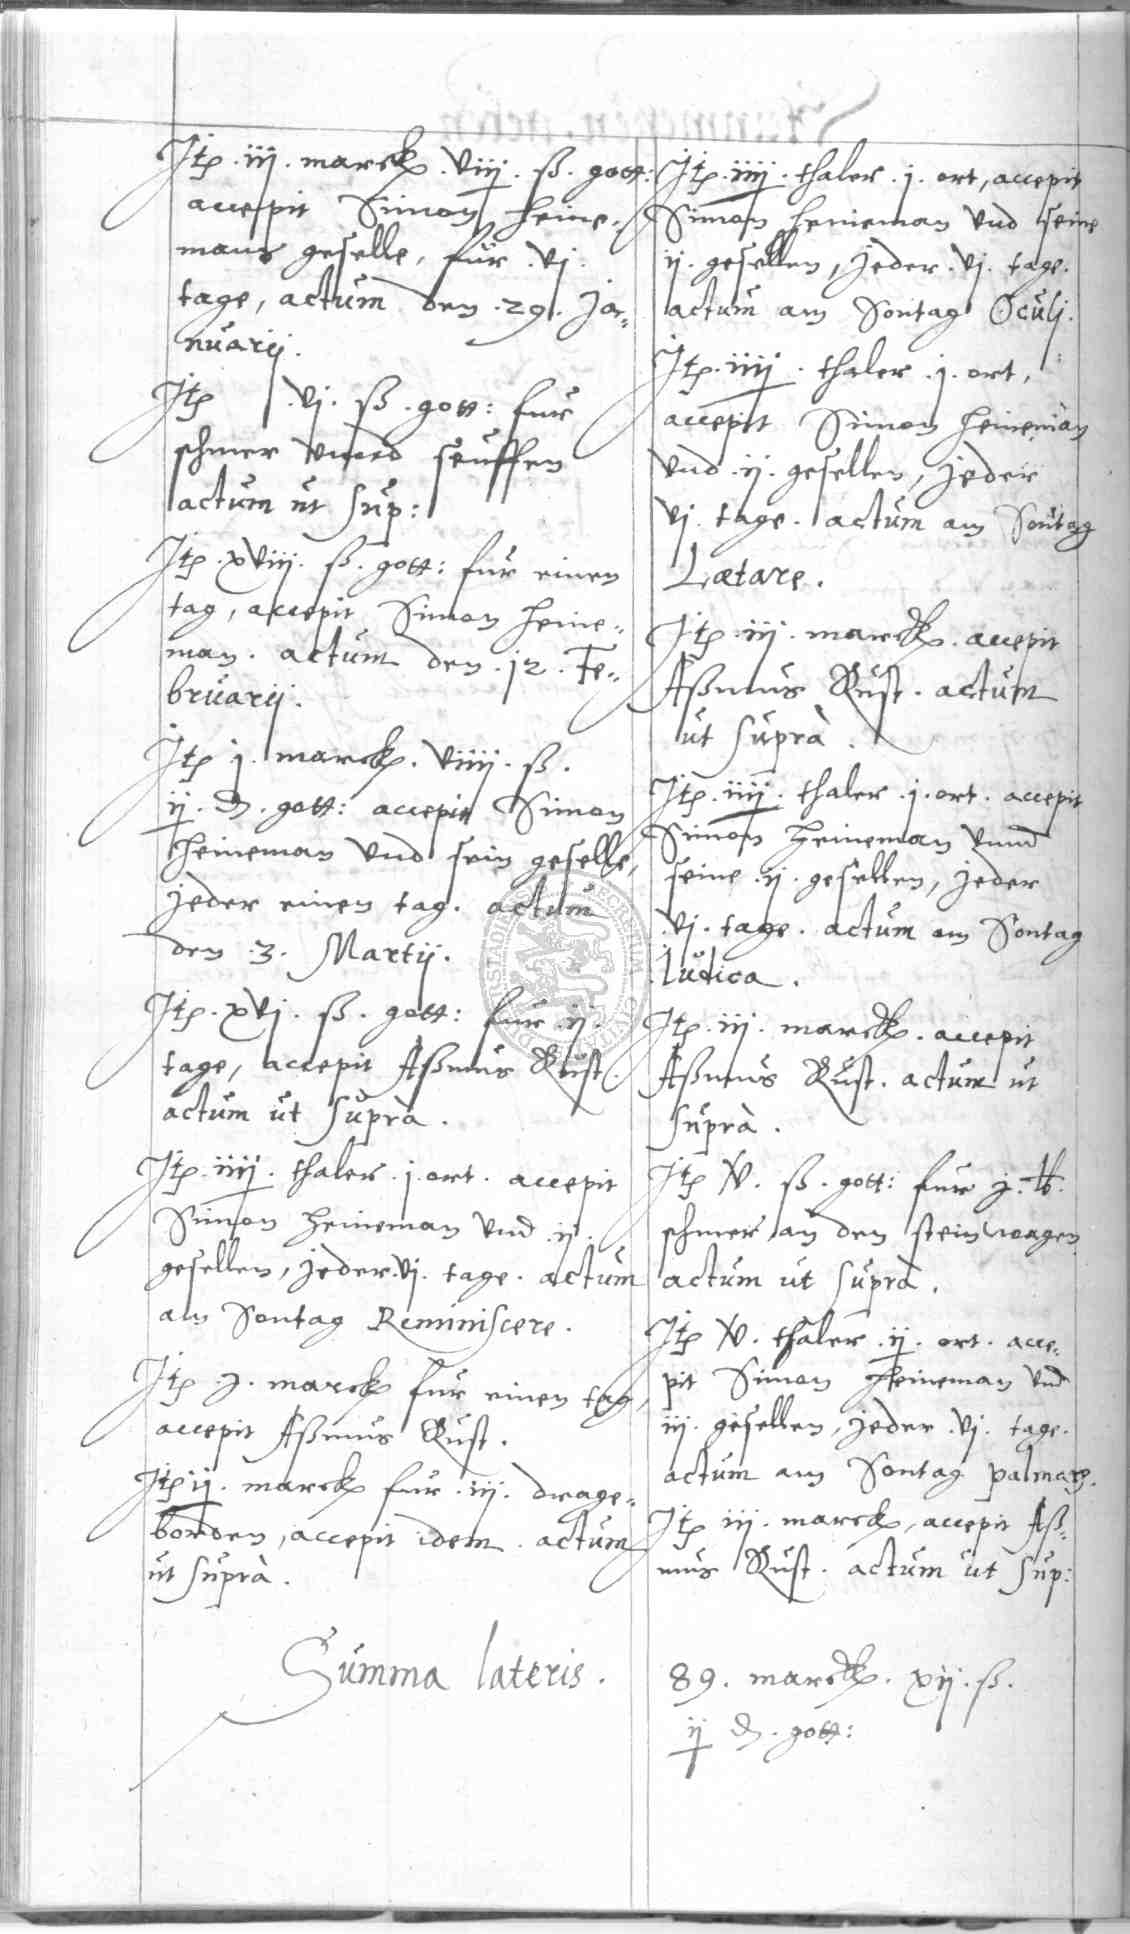 Jtē .iij. marck. viij. ß. gott:
accepit Simon Heine-
mans geselle, fur .vj.
tage, actum den .29. Ja-
nuarij.
Jtē .vj. ß. gott: fur
schmer vnnd seuffen
actum ut sup:
Jtē .xviij. ß. gott: fur einen
tag, accepit Simon Heine-
man. actum den .12. Fe-
bruarij.
Jtē j. marck. viiij. ß.
ij. ₰. gott: accepit Simon
Heineman vnd sein geselle,
jeder einen tag. actum
den .3. Martij.
Jtē .xvj. ß. gott: fur .ij.
tage, accepit Aßmus Rust.
actum ut suprà.
Jtē .iiij. thaler .j. ort. accepit
Simon Heineman vnd .ij.
gesellen, jeder .vj. tage. actum
am Sontag Reminiscere.
Jtē .j. marck fur einen tag,
accepit Aßmus Rust.
Jtē ij. marck fur .iij. drage-
borden, accepit idem. actum
ut suprà.
Summa lateris.
Jtē .iiij. thaler .j. ort, accepit
Simon Heineman vnd seine
ij. gesellen, jeder .vj. tage.
actum am Sontag Oculj.
Jtē .iiij. thaler .j. ort,
accepit Simon Heineman
vnd .ij. gesellen, jeder
vj. tage. actum am Sontag
Lætare.
Jtē .iij. marck. accepit
Aßmus Rust. actum
ut suprà.
Jtē .iiij. thaler .j. ort. accepit
Simon Heineman vnnd
seine .ij. gesellen, jeder
.vj. tage. actum am Sontag
Iudica.
Jtē .iij. marck. accepit
Aßmus Rust. actum ut
suprà.
Jtē v. ß. gott: fur j. ℔.
schmer an den steinwagen
actum ut suprà.
Jtē v. thaler .ij. ort. acce-
pit Simon Heineman vnd
iij. gesellen, jeder .vj. tage.
actum am Sontag palmarū.
Jtē iij. marck, accepit Aß-
mus Rust. actum ut sup:
89. marck. xij. ß.
ij ₰. gott: